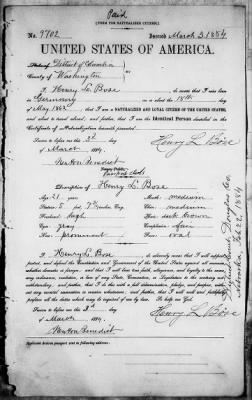 Paid
[FORM FOR NATURALIZED CITIZEN.]
No. 9702 Issued March 3, 1884
UNITED STATES OF AMERICA.
State of District of Columbia
County of Washington
I, Henry L. Bose, do swear that I was born
in Germany on or about the 14th day
of May 1862; that I am a NATURALIZED AND LOYAL CITIZEN OF THE UNITED STATES,
and about to travel abroad; and further, that I am the Identical Person described in the
Certificate of Naturalization herewith presented.
Sworn to before me this 3d
day of March 1884.
Henry L Bose
Newton Benedict
Notary Public.
Description of Henry L. Bose
Age: 21 years Mouth: medium
Stature: 5 feet, 7 inches, Eng. Chin: medium
Forehead: high Hair: dark brown
Eyes: gray Complexion: fair
Nose: prominent Face: oval
I, Henry L. Bose, do solemnly swear that I will support,
protect, and defend the Constitution and Government of the United States against all enemies,
whether domestic or foreign; and that I will bear true faith, allegiance, and loyalty to the same,
any ordinance, resolution, or law of any State, Convention, or Legislature to the contrary not-
withstanding; and further, that I do this with a full determination, pledge, and purpose, without
any mental reservation or evasion whatsoever; and further, that I will well and faithfully
perform all the duties which may be required of me by law. So help me God.
Sworn to before me this 3d
day of March 1884.
Henry L Bose
Newton Benedict
Applicant desires passport sent to following address: